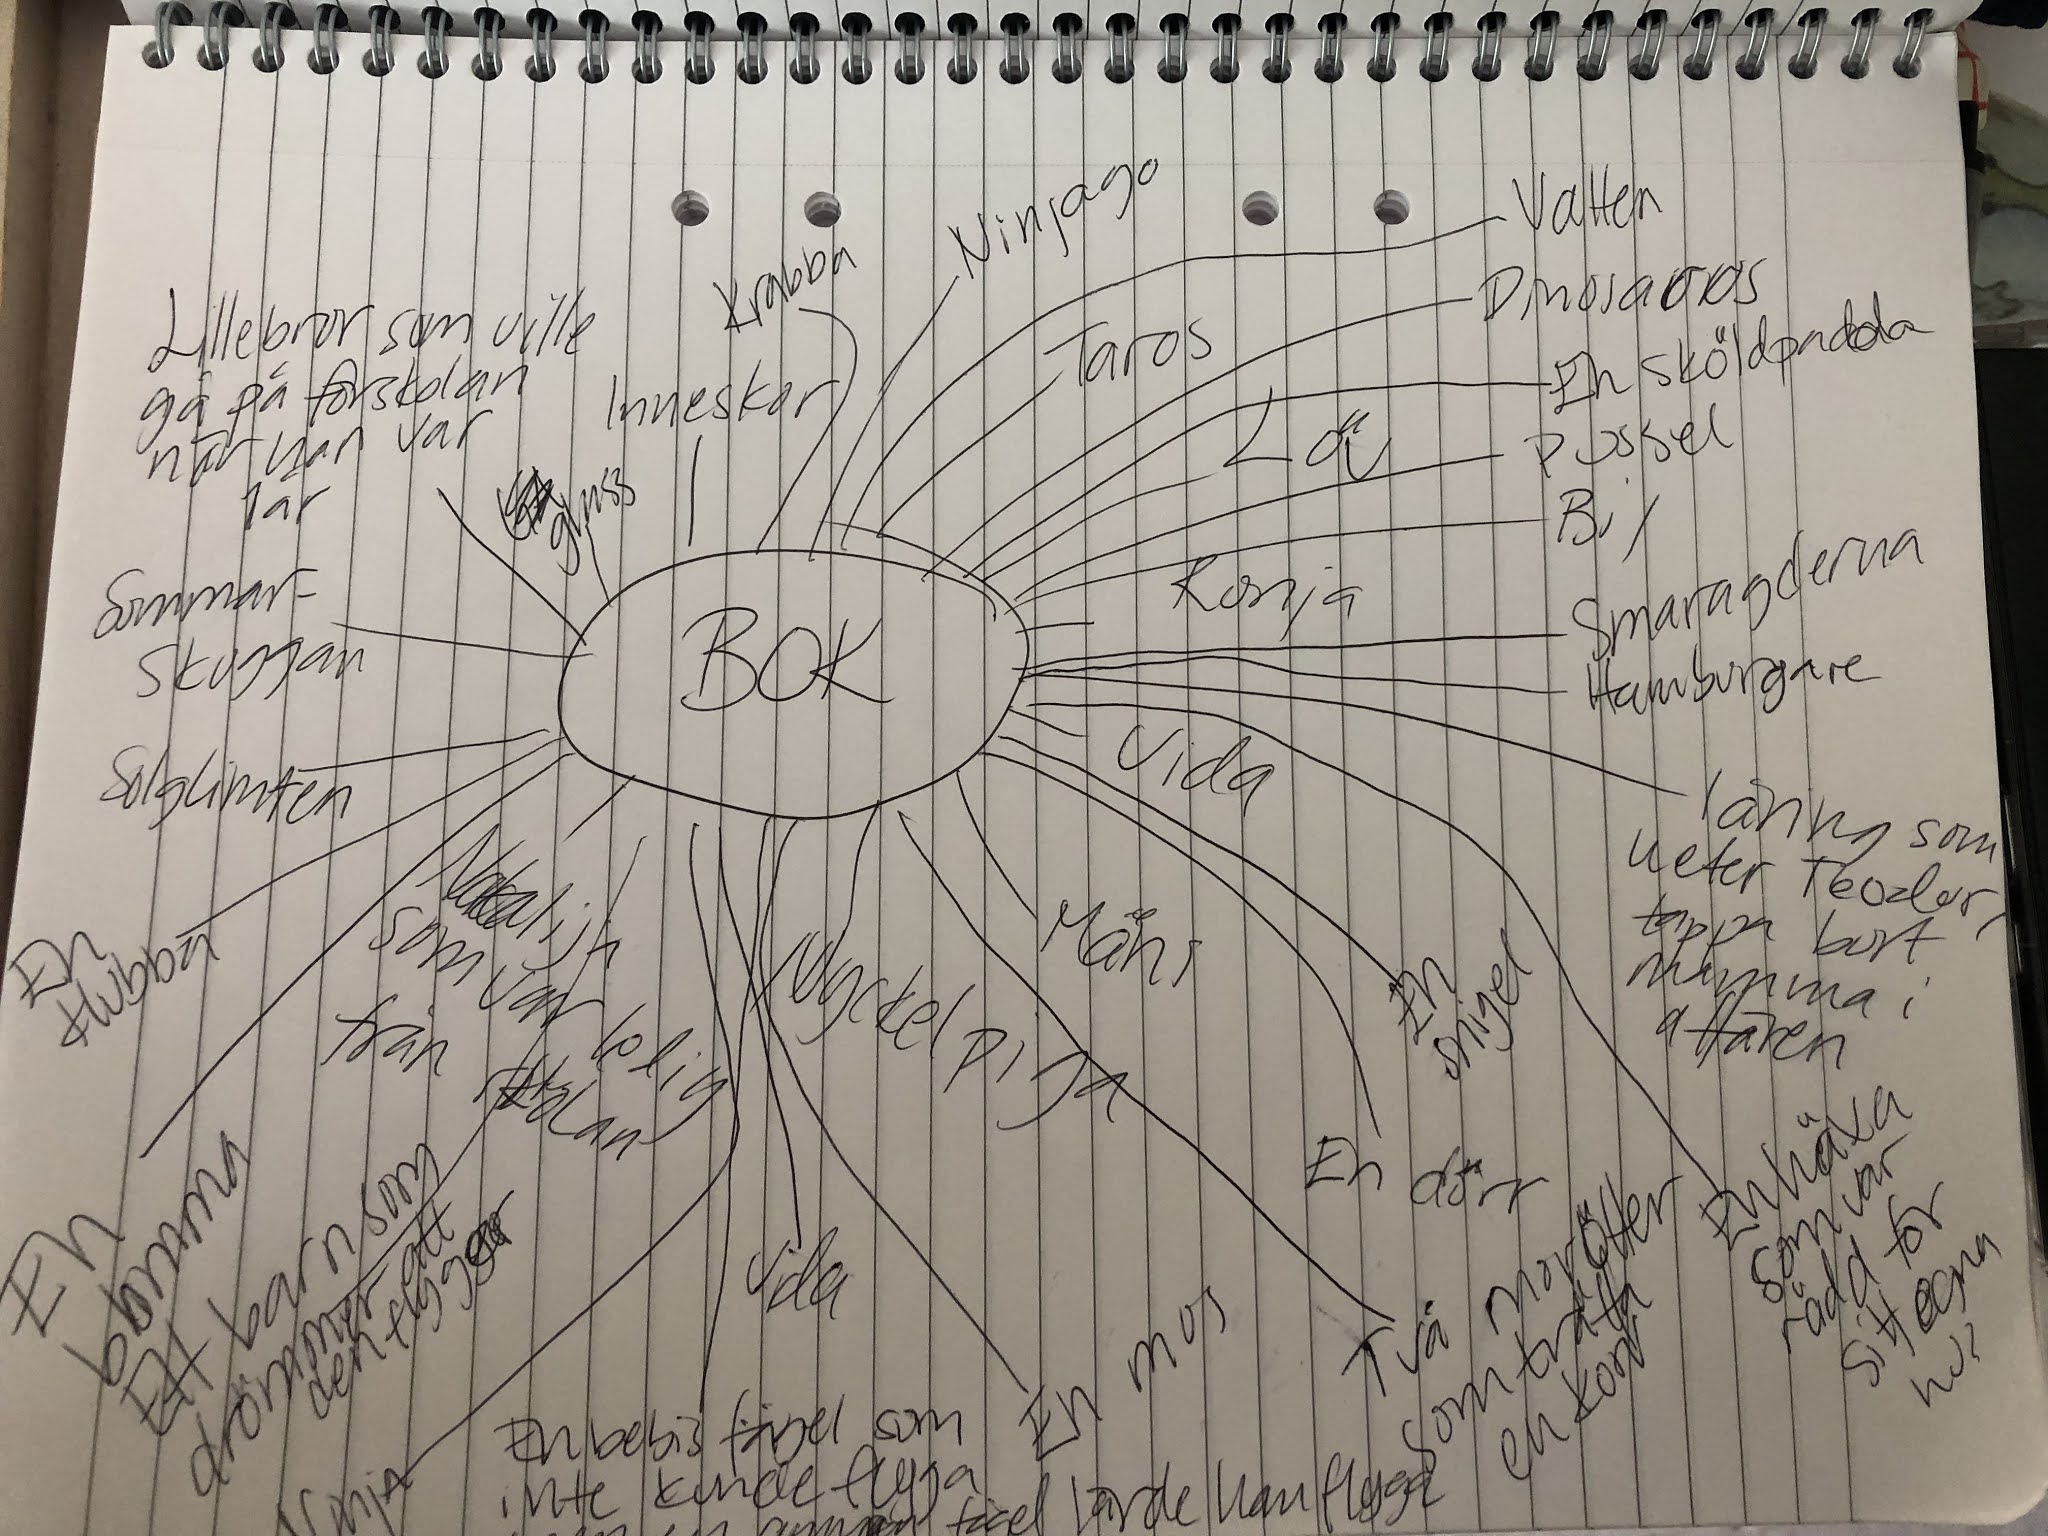 BOK
Krabba
Ninjago
Vatten
Taros
Dinosaurus
En sköldpadda
Löv
Pussel
Bil
Ronja
Smaragderna
Hamburgare
1 åring som
heter Teodor,
tappa bort
mamma i
affären
En häxa
som var
rädd för
sitt egna
hus
Vida
En
snigel
En dörr
Måns
Två morötter
som träffa
en korv
En mus
Nyckelpiga
Vida
En bebis fågel som
inte kunde flyga
fågel lärde han flyga
Ninja
Natalija
som var ledig
från
skolan
Ett barn som
drömmer att
den flyger
En
blomma
En
klubba
Solglimten
Sommar-
skuggan
Lillebror som ville
gå på förskolan
när han var
1 år
gluss
Inneskor